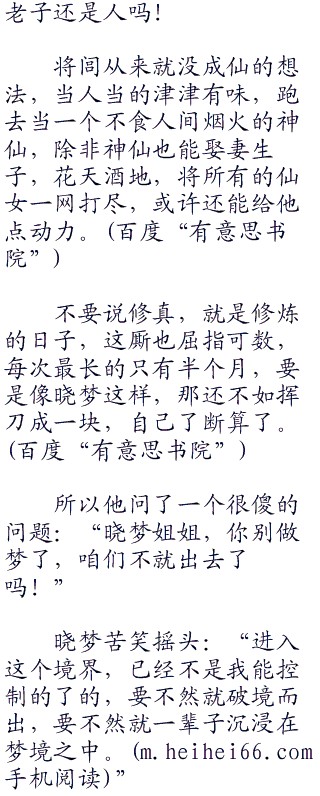 老子还是人吗！
将闾从来就没成仙的想
法，当人当的津津有味，跑
去当一个不食人间烟火的神
仙，除非神仙也能娶妻生
子，花天酒地，将所有的仙
女一网打尽，或许还能给他
点动力。(百度“有意思书
院”)
不要说修真，就是修炼
的日子，这厮也屈指可数，
每次最长的只有半个月，要
是像晓梦这样，那还不如挥
刀成一块，自己了断算了。
(百度“有意思书院”)
所以他问了一个很傻的
问题：“晓梦姐姐，你别做
梦了，咱们不就出去了
吗！”
晓梦苦笑摇头：“进入
这个境界，已经不是我能控
制的了的，要不然就破境而
出，要不然就一辈子沉浸在
梦境之中。(m.heihei66.com
手机阅读)”